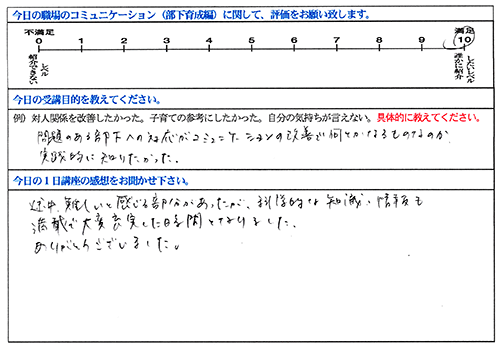 今日の職場のコミュニケーション（部下育成編）に関して、評価をお願い致します。
不満足 満足
0 1 2 3 4 5 6 7 8 9 10
紹介できないレベル
誰かに紹介したいレベル
今日の受講目的を教えてください。
例）対人関係を改善したかった。子育ての参考にしたかった。自分の気持ちが言えない。具体的に教えてください。
問題のある部下への対応がコミュニケーションの改善で何とかなるものなのか
実践的に知りたかった。
今日の１日講座の感想をお聞かせ下さい。
途中、難しいと感じる部分があったが、科学的な知識・情報も
満載で大変充実した日を間となりました。
ありがとうございました。